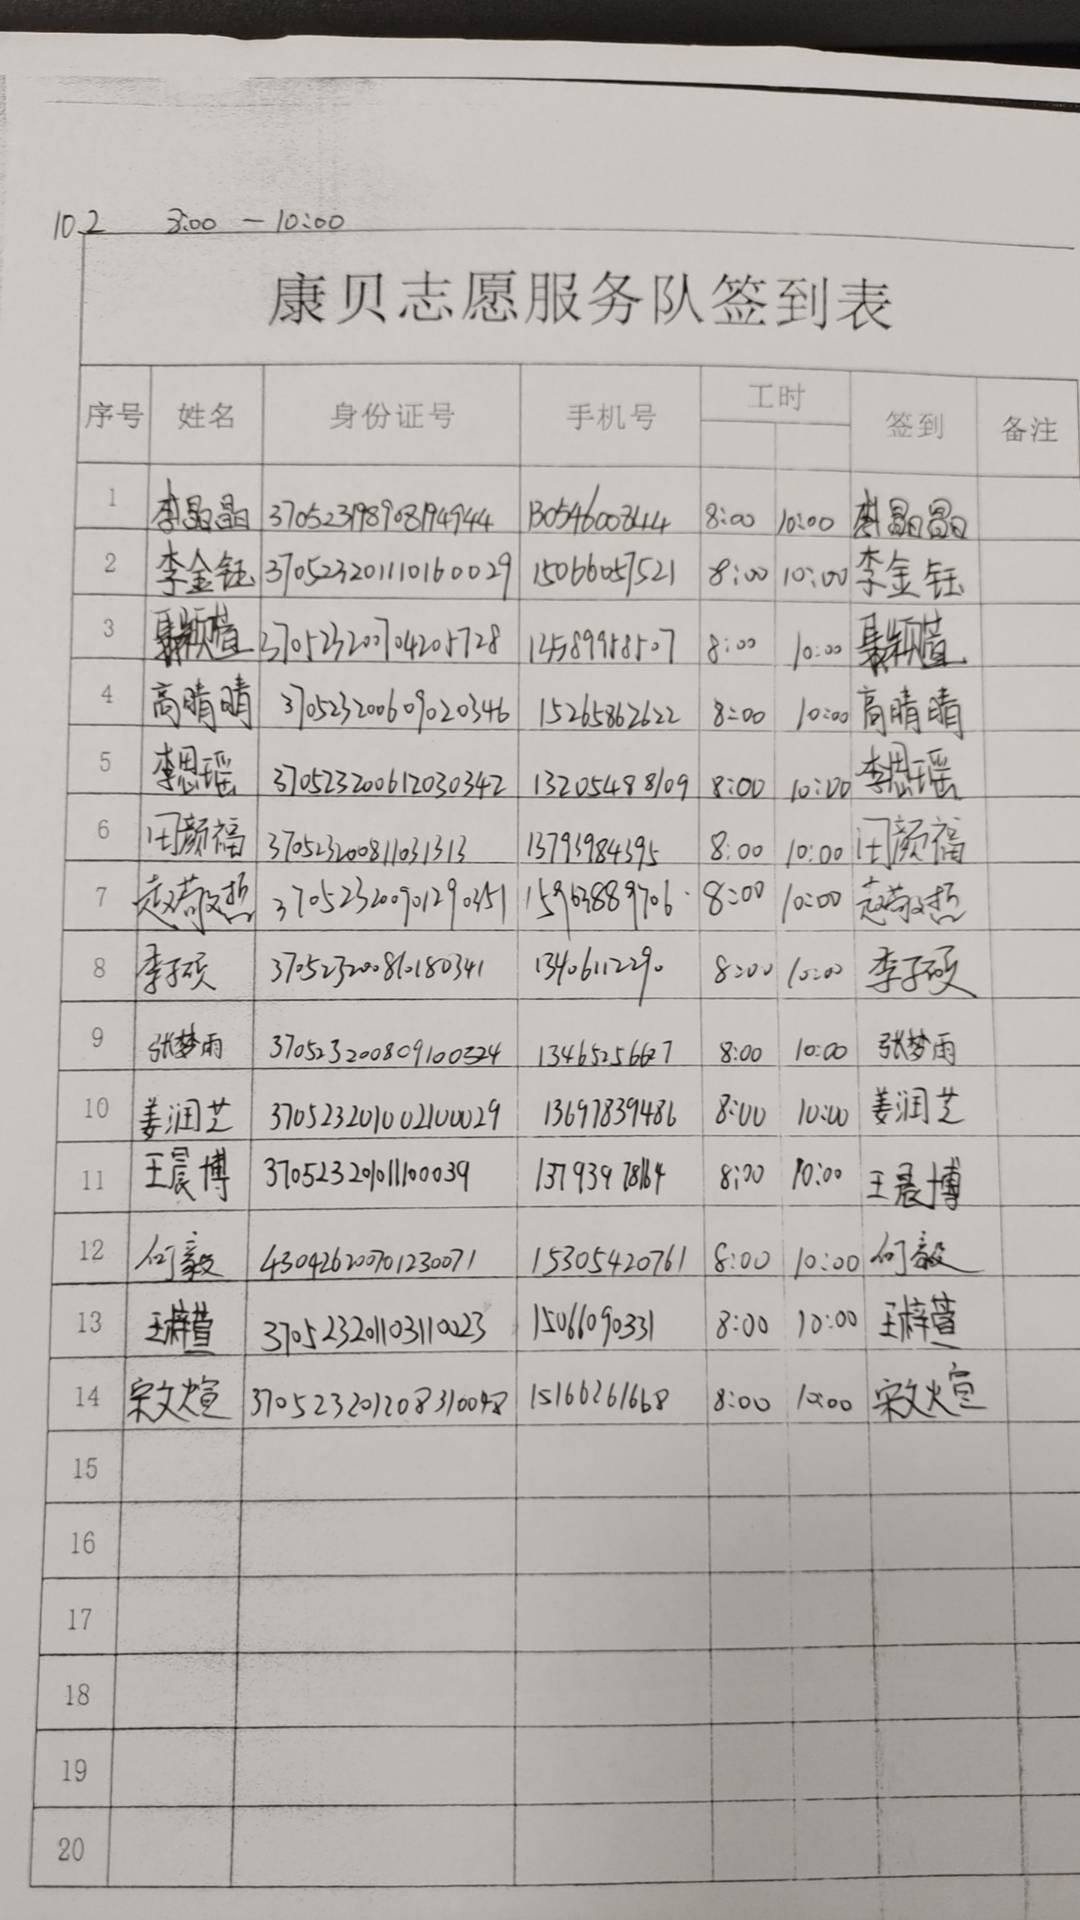 10.2 8:00 — 10:00
康贝志愿服务队签到表
序号 姓名 身份证号 手机号 工时 签到 备注
1 李晶晶 370523198908194944 8:00 10:00 李晶晶
2 李金钰 370523201110160029 15066057521 8:00 10:00 李金钰
3 8:00 10:00
4 高晴晴 370523200609020346 15265862622 8:00 10:00 高晴晴
5 李思瑶 370523200612030342 13205488109 8:00 10:00 李思瑶
6 闫颜福 370523200811031313 13793984395 8:00 10:00 闫颜福
7 赵敬哲 370523200901290351 15963889706 8:00 10:00 赵敬哲
8 李子硕 370523200810180341 13406112290 8:00 10:00 李子硕
9 张梦雨 370523200809100324 13465256627 8:00 10:00 张梦雨
10 姜润芝 370523201002100029 13697839486 8:00 10:00 姜润芝
11 王晨博 8:00 10:00 王晨博
12 何毅 430426200701230071 15305420761 8:00 10:00 何毅
13 王梓萱 370523201103110023 15066090331 8:00 10:00 王梓萱
14 宋文煊 370523201208310048 15166261668 8:00 10:00 宋文煊
15
16
17
18
19
20